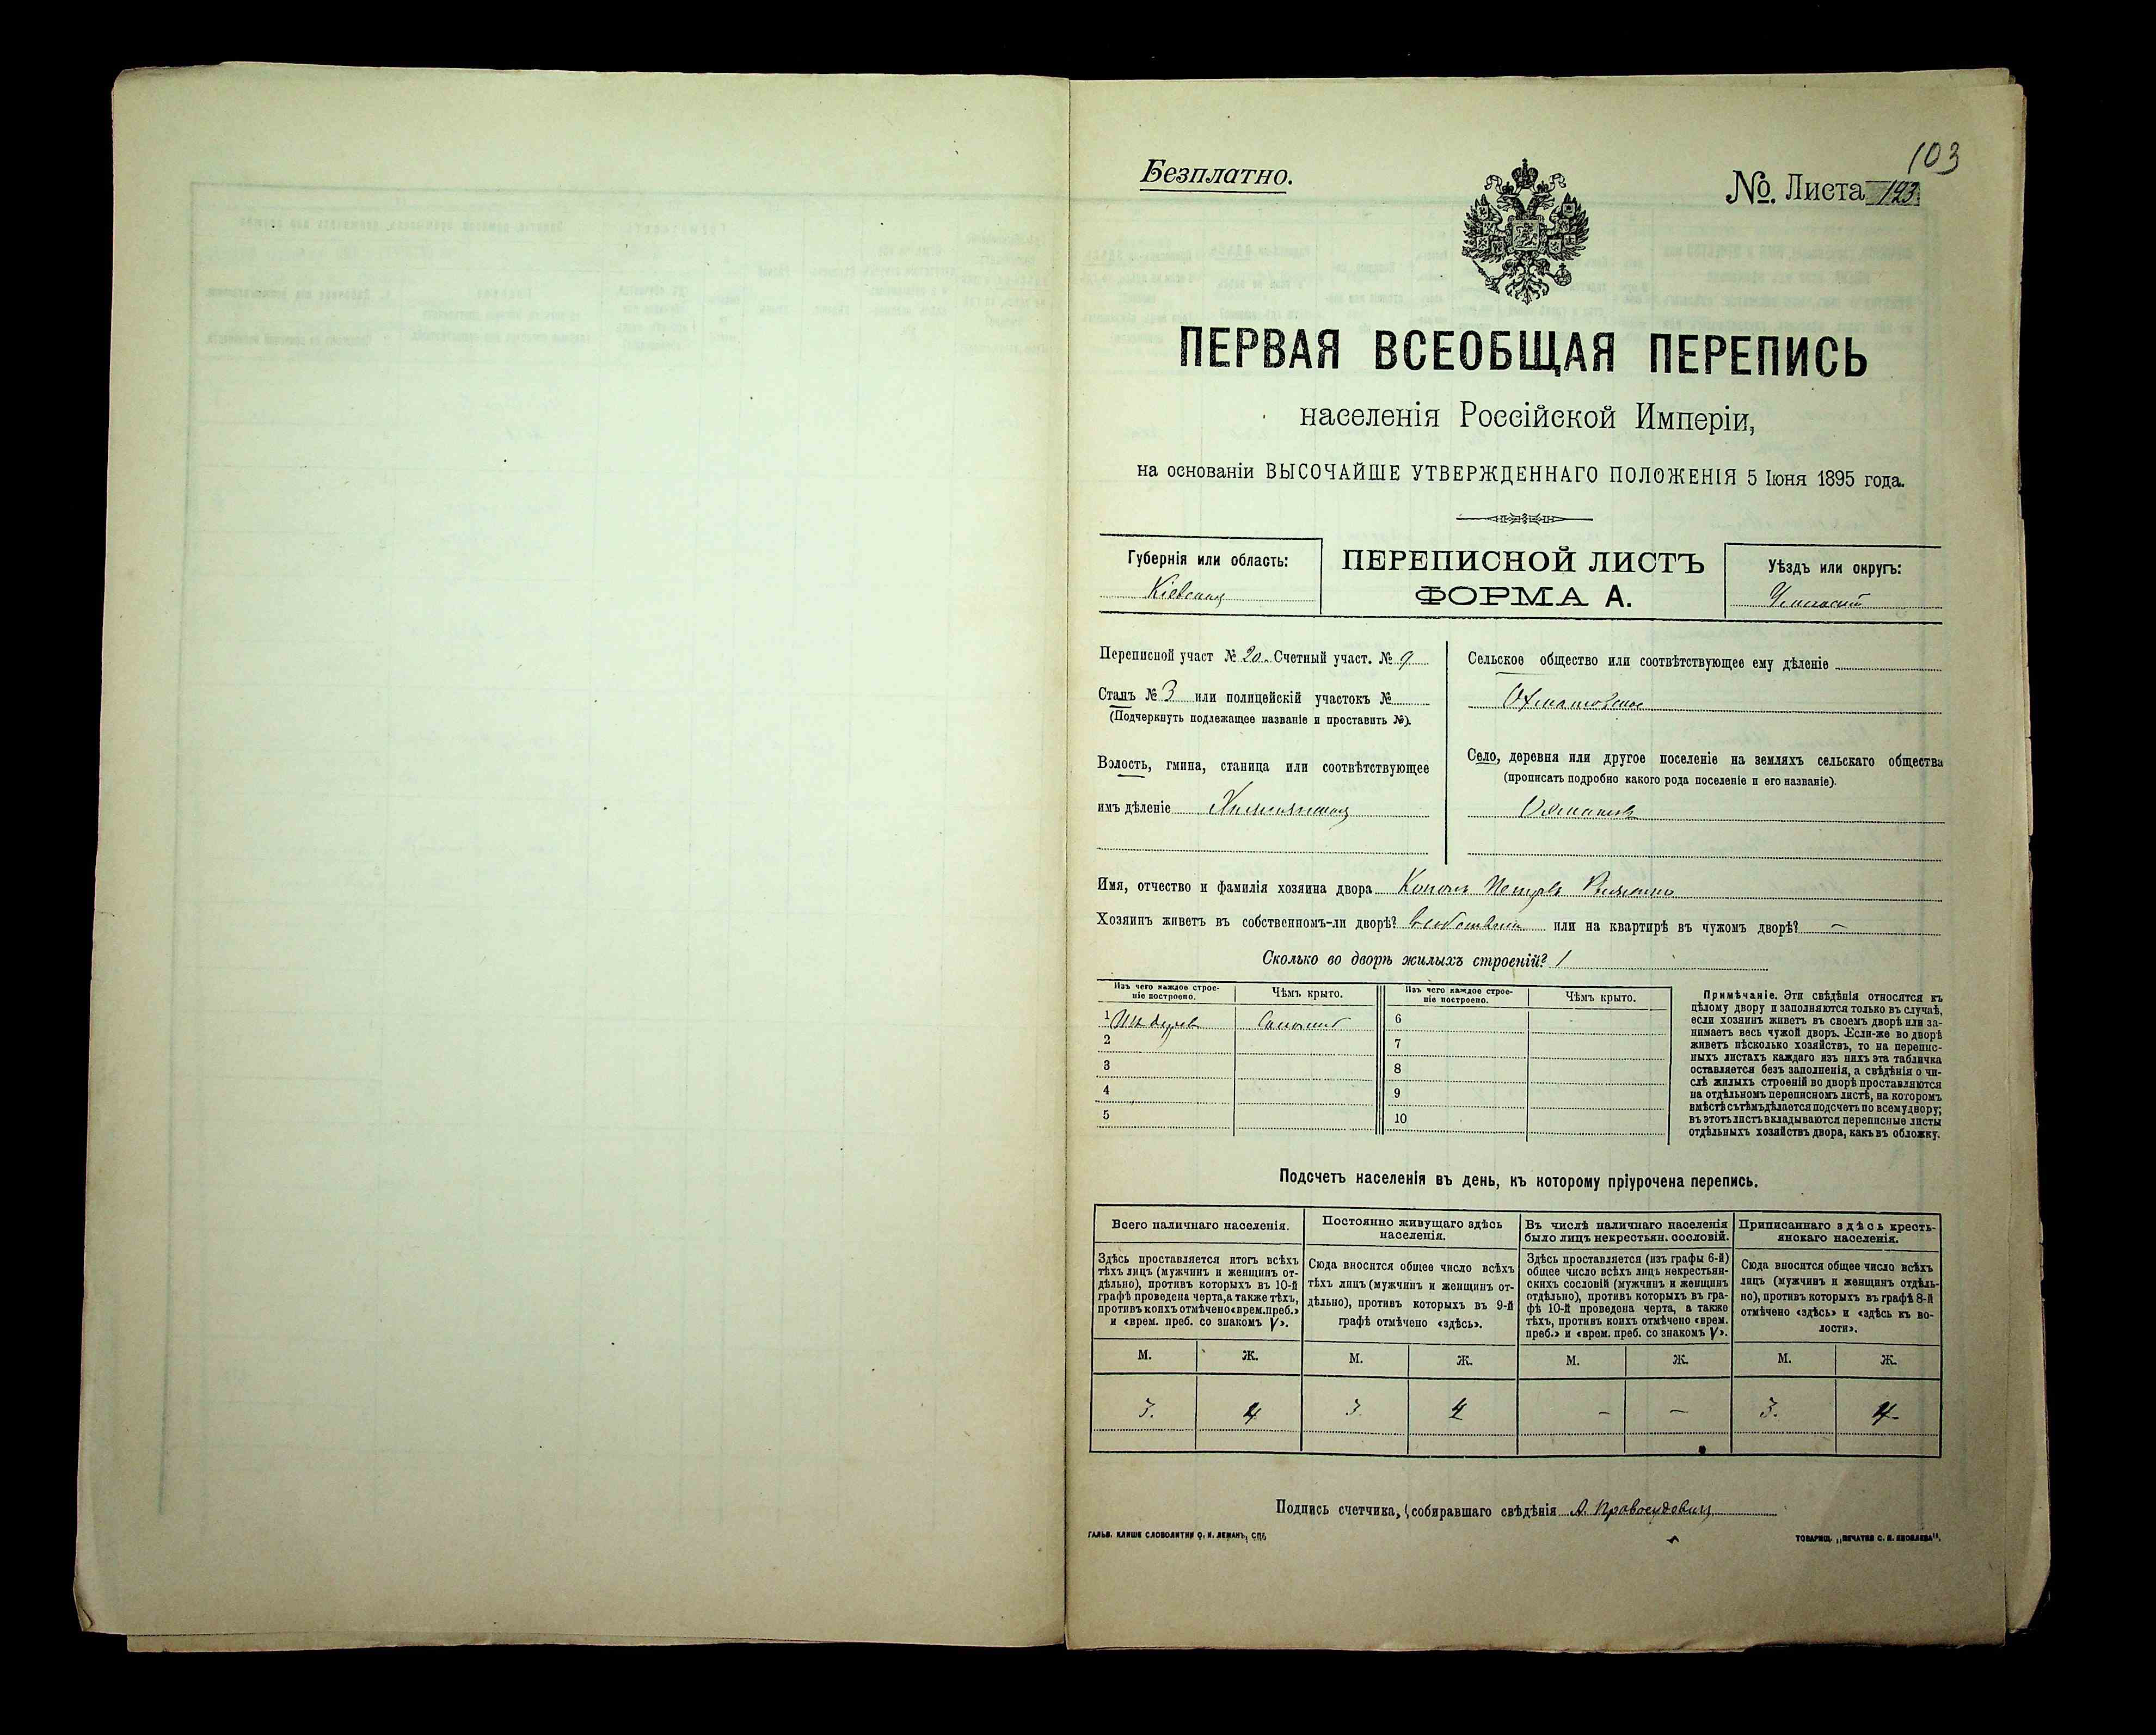 103
Безплатно.
№. Листа 123
ПЕРВАЯ ВСЕОБЩАЯ ПЕРЕПИСЬ
населенія Россійской Имперіи,
на основаніи ВЫСОЧАЙШЕ УТВЕРЖДЕННАГО ПОЛОЖЕНІЯ 5 Іюня 1895 года.
Губернія или область:
Кіевская
ПЕРЕПИСНОЙ ЛИСТЪ
ФОРМА А.
Уѣздъ или округъ:
Уманскій
Переписной участ № 20. Счетный участ. № 9
Станъ № 3 или полицейскій участокъ №
(Подчеркнуть подлежащее названіе и проставить №).
Волость, гмина, станица или соотвѣтствующее
имъ дѣленіе
Сельское общество или соотвѣтствующее ему дѣленіе
Охматовское
Село, деревня или другое поселеніе на земляхъ сельскаго общества
(прописать подробно какого рода поселеніе и его названіе).
Охматовъ
Имя, отчество и фамилія хозяина двора Кононъ Петровъ
Хозяинъ живетъ въ собственномъ-ли дворѣ? или на квартирѣ въ чужомъ дворѣ? —
Сколько во дворѣ жилыхъ строеній? 1
Изъ чего каждое строе-
ніе построено.
Чѣмъ крыто.
Изъ чего каждое строе-
ніе построено.
Чѣмъ крыто.
1 Изъ дерев Соломой 6
2 7
3 8
4 9
5 10
Примѣчаніе. Эти свѣдѣнія относятся къ
цѣлому двору и заполняются только въ случаѣ,
если хозяинъ живетъ въ своемъ дворѣ или за-
нимаетъ весь чужой дворъ. Если-же во дворѣ
живетъ нѣсколько хозяйствъ, то на перепис-
ныхъ листахъ каждаго изъ нихъ эта табличка
оставляется безъ заполненія, а свѣдѣнія о чи-
слѣ жилыхъ строеній во дворѣ проставляются
на отдѣльномъ переписномъ листѣ, на которомъ
вмѣстѣ съ тѣмъ дѣлается подсчетъ по всему двору;
въ этотъ листъ вкладываются переписные листы
отдѣльныхъ хозяйствъ двора, какъ въ обложку.
Подсчетъ населенія въ день, къ которому пріурочена перепись.
Всего наличнаго населенія.
Здѣсь проставляется итогъ всѣхъ
тѣхъ лицъ (мужчинъ и женщинъ от-
дѣльно), противъ которыхъ въ 10-й
графѣ проведена черта, а также тѣхъ,
противъ коихъ отмѣчено «врем. преб.»
и «врем. преб. со знакомъ V».
Постоянно живущаго здѣсь
населенія.
Сюда вносится общее число всѣхъ
тѣхъ лицъ (мужчинъ и женщинъ от-
дѣльно), противъ которыхъ въ 9-й
графѣ отмѣчено «здѣсь».
Въ числѣ наличнаго населенія
было лицъ некрестьян. сословій.
Здѣсь проставляется (изъ графы 6-й)
общее число всѣхъ лицъ некрестьян-
скихъ сословій (мужчинъ и женщинъ
отдѣльно), противъ которыхъ въ гра-
фѣ 10-й проведена черта, а также
тѣхъ, противъ коихъ отмѣчено «врем.
преб.» и «врем. преб. со знакомъ V».
Приписаннаго здѣсь кресть-
янскаго населенія.
Сюда вносится общее число всѣхъ
лицъ (мужчинъ и женщинъ отдѣль-
но), противъ которыхъ въ графѣ 8-й
отмѣчено «здѣсь» и «здѣсь къ во-
лости».
М. Ж. М. Ж. М. Ж. М. Ж.
3. 4 3 4 — — 3. 4.
Подпись счетчика, собиравшаго свѣдѣнія А. Правосудовичъ
ГАЛЬВ. КЛИШЕ СЛОВОЛИТНИ О. И. ЛЕМАНЪ, СПБ.
ТОВАРИЩ. „ПЕЧАТНЯ С. П. ЯКОВЛЕВА".